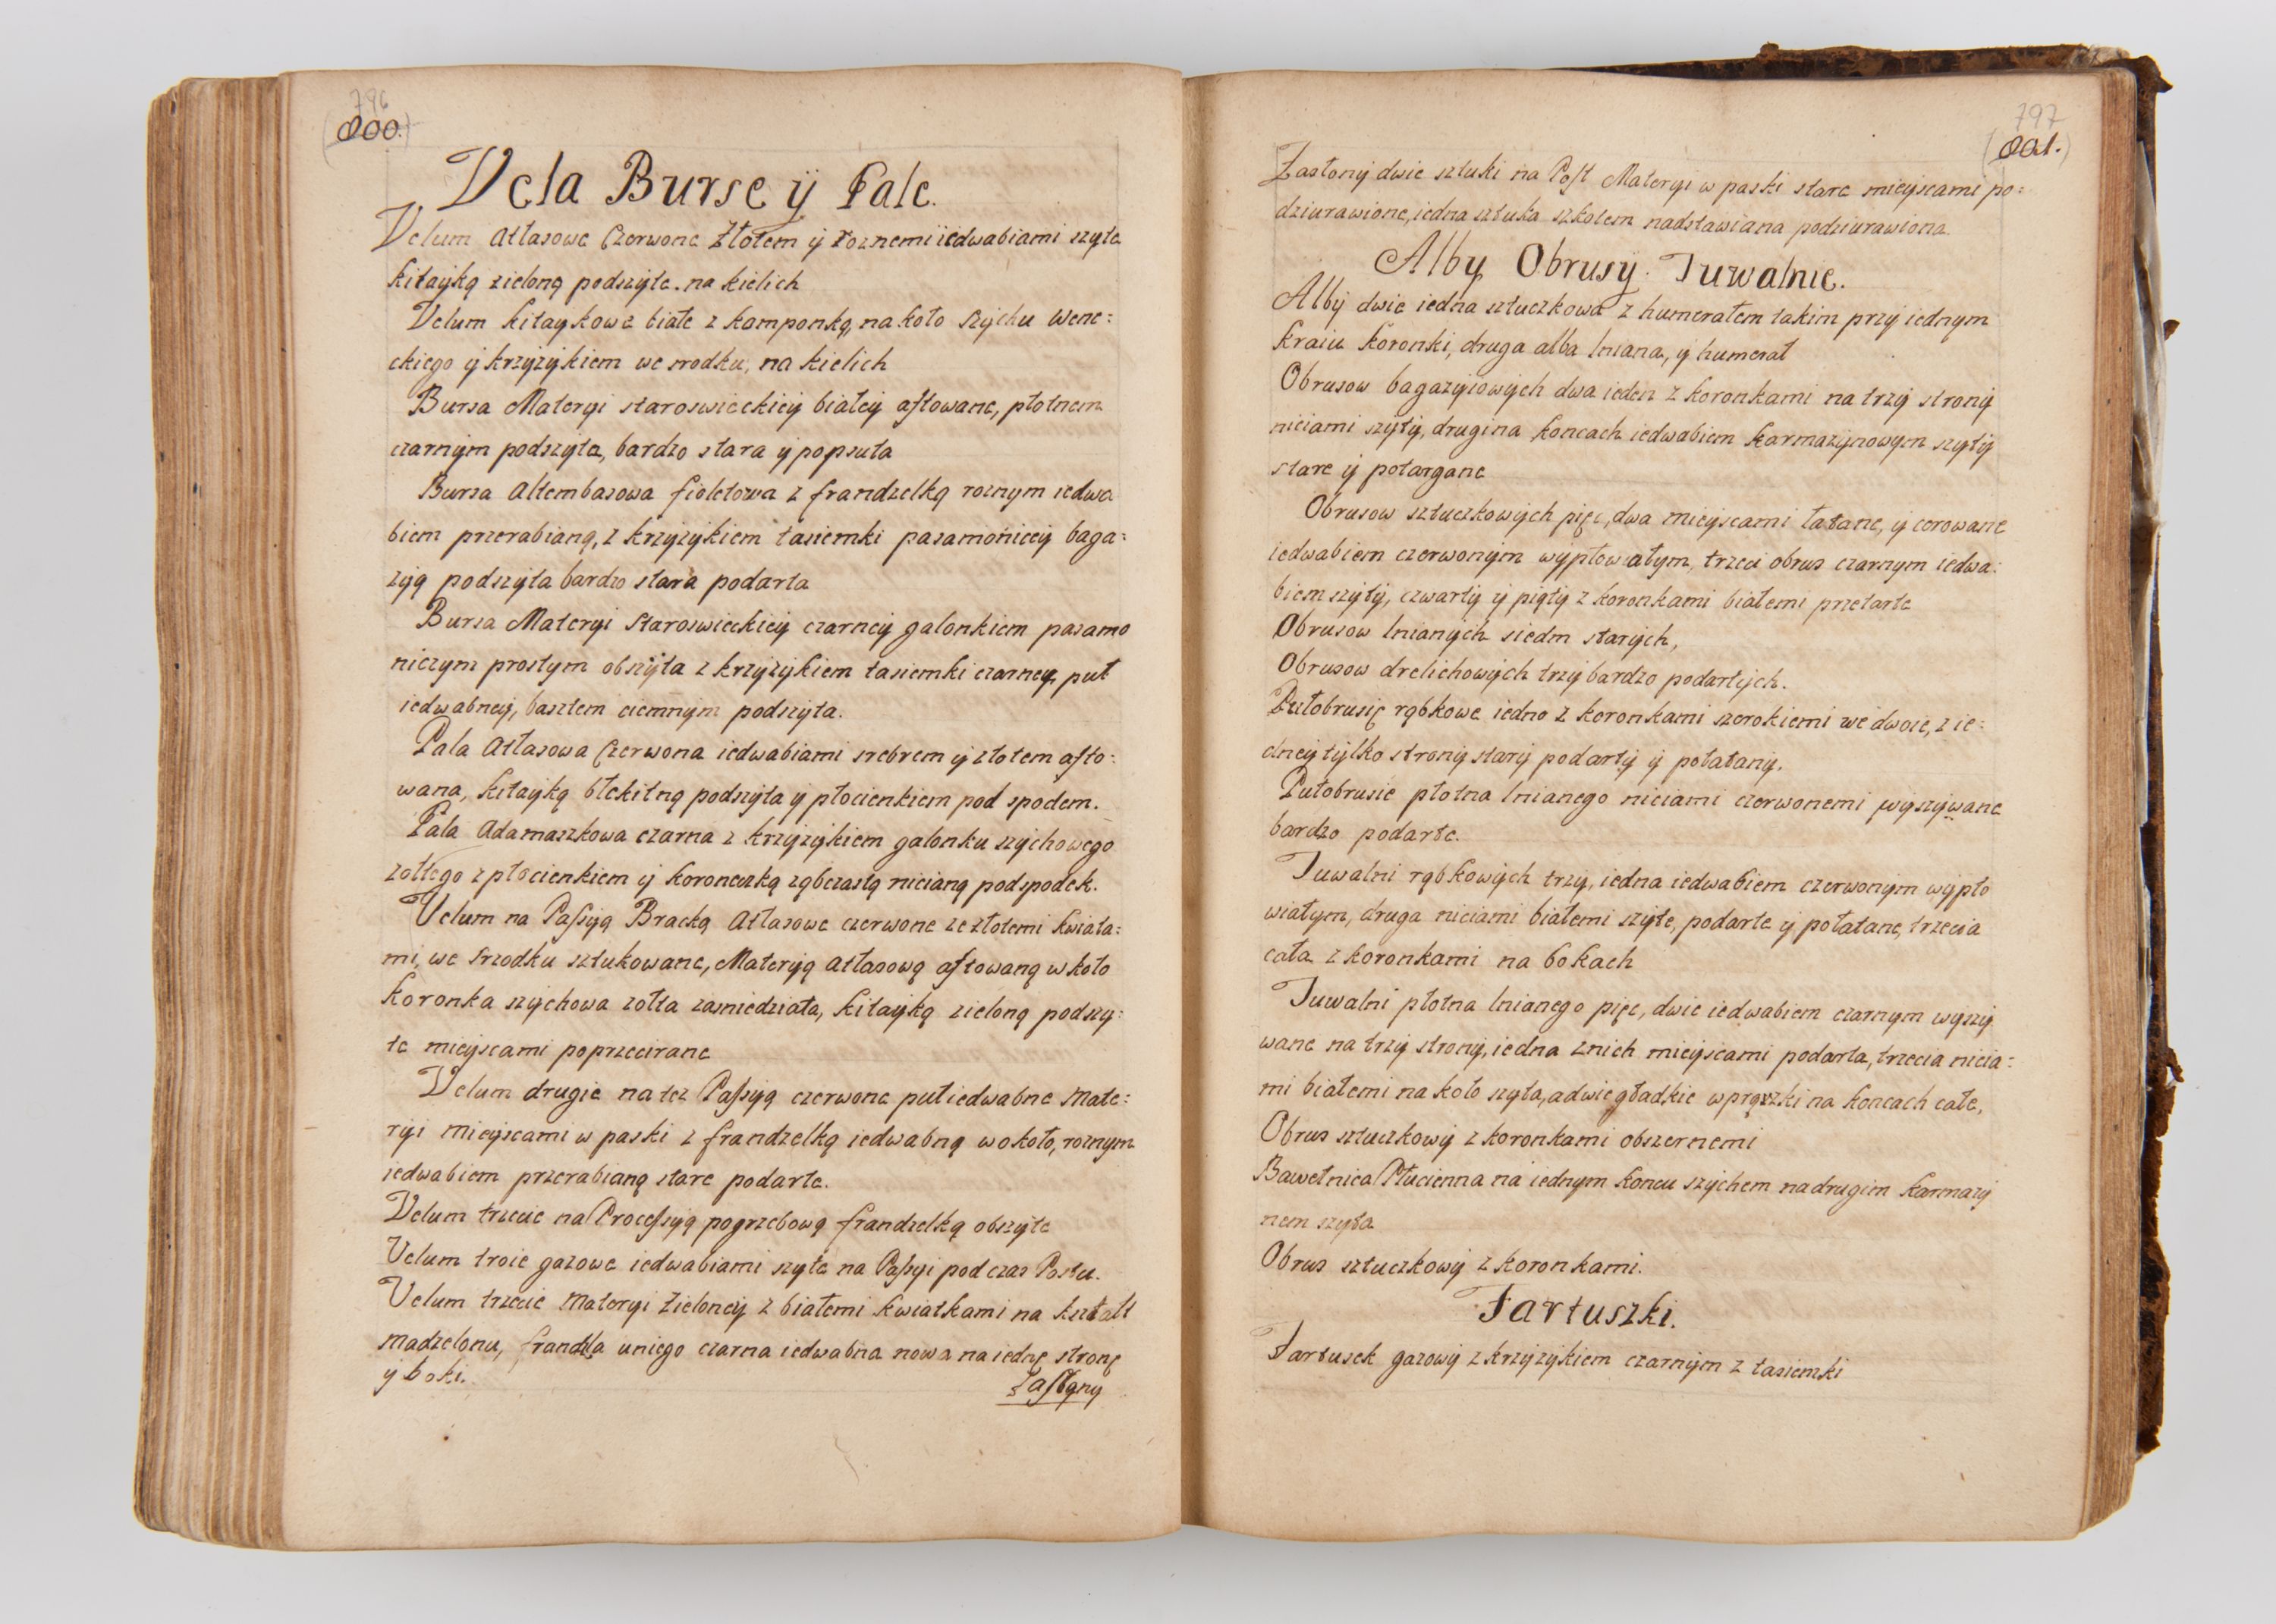 796
(800.)
Vela Burse ÿ Pale.
Velum Atłasowe Czerwone Złotem ÿ roznemi iedwabiami szyte
kitayką zieloną podszyte. na kielich
Velum kitaykowe białe z kamponką, na koło Szychu Wene:
ckiego ÿ krzyzykiem we srodku, na kielich
Bursa Materyi staroswieckiey białey aftowane, płotnem
czarnym podszyta, bardzo stara ÿ popsuta
Bursa Altembasowa fioletowa z frandzelką roznym iedwa
biem przerabianą, z krzyzykiem tasiemki pasamoniczey baga:
zyą podszyta bardzo stara podarta
Bursa Materyi Staroswieckiey czarney galonkiem pasamo
niczym prostym obszyta z krzyzykiem tasiemki czarney puł
iedwabney, basztem ciemnym podszyta.
Pala Atłasowa Czerwona iedwabiami srebrem ÿ złotem afto:
wana, kitayką błekitną podszyta ÿ płocienkiem pod spodem.
Pala Adamaszkowa czarna z krzyzykiem galonku szychowego
zołtego z płocienkiem ÿ koroneczką ząbczastą nicianą podspodek.
Velum na Passyą Bracką Atłasowe czerwone ze złotemi kwiata:
mi, we Srzodku sztukowane, Materyą atłasową aftowaną w koło
koronka szychowa zołta zasniedziała, kitayką zieloną podszy:
te mieyscami poprzecirane
Velum drugie na tez Passyą czerwone puł iedwabne Mate:
ryi mieyscami w paski z frandzelką iedwabną wokoło, roznym
iedwabiem przerabianą stare podarte.
Velum trzecie na Processyą pogrzebową frandzelką obszyte
Velum troie gazowe iedwabiami szyte na Passyi pod czas Postu.
Velum trzecie Materyi Zieloney z białemi kwiatkami na kształt
madzelonu, frandzla uniego czarna iedwabna nowa na iednę stronę
ÿ boki.
Zasłony
797
(801.)
Zasłony dwie sztuki na Post Materyi w paski stare mieyscami po:
dziurawione, iedna sztuka szkotem nadstawiana podziurawiona.
Alby Obrusÿ Tuwalnie.
Alby dwie iedna sztuczkowa z humerałem takim przy iednym
kraiu koronki, druga alba lniana, ÿ humerał
Obrusow bagazyiowych dwa ieden z koronkami na trzy strony
niciami szyty, drugi na koncach iedwabiem karmazynowym szyty
stare ÿ potargane
Obrusow sztuczkowych pięc, dwa mieyscami łatane, ÿ cerowane
iedwabiem czerwonym wypłowiałym, trzeci obrus czarnym iedwa:
biem szyty, czwarty ÿ piąty z koronkami białemi przetarte
Obrusow lnianych siedm starych,
Obrusow drelichowych trzy bardzo podartych.
Pułobrusię rąbkowe iedno z koronkami szerokiemi we dwoie, z ie:
dney tylko strony stary podarty ÿ połatany.
Pułobrusie płotna lnianego niciami czerwonemi wyszywane
bardzo podarte.
Tuwalni rąbkowych trzy, iedna iedwabiem czerwonym wypło
wiałym, druga niciami białemi szyte, podarte ÿ połatane, trzecia
cała z koronkami na bokach
Tuwalni płotna lnianego pięc, dwie iedwabiem czarnym wyszy
wane na trzy strony, iedna z nich mieyscami podarta, trzecia nicia:
mi białemi na koło szyta, a dwie gładkie w prążki na koncach całe,
Obrus sztuczkowy z koronkami obszernemi
Bawełnica Płucienna na iednym koncu szychem na drugim karmazy
nem szyta
Obrus sztuczkowy z koronkami.
Fartuszki.
Fartusek gazowy z krzyzykiem czarnym z tasiemki